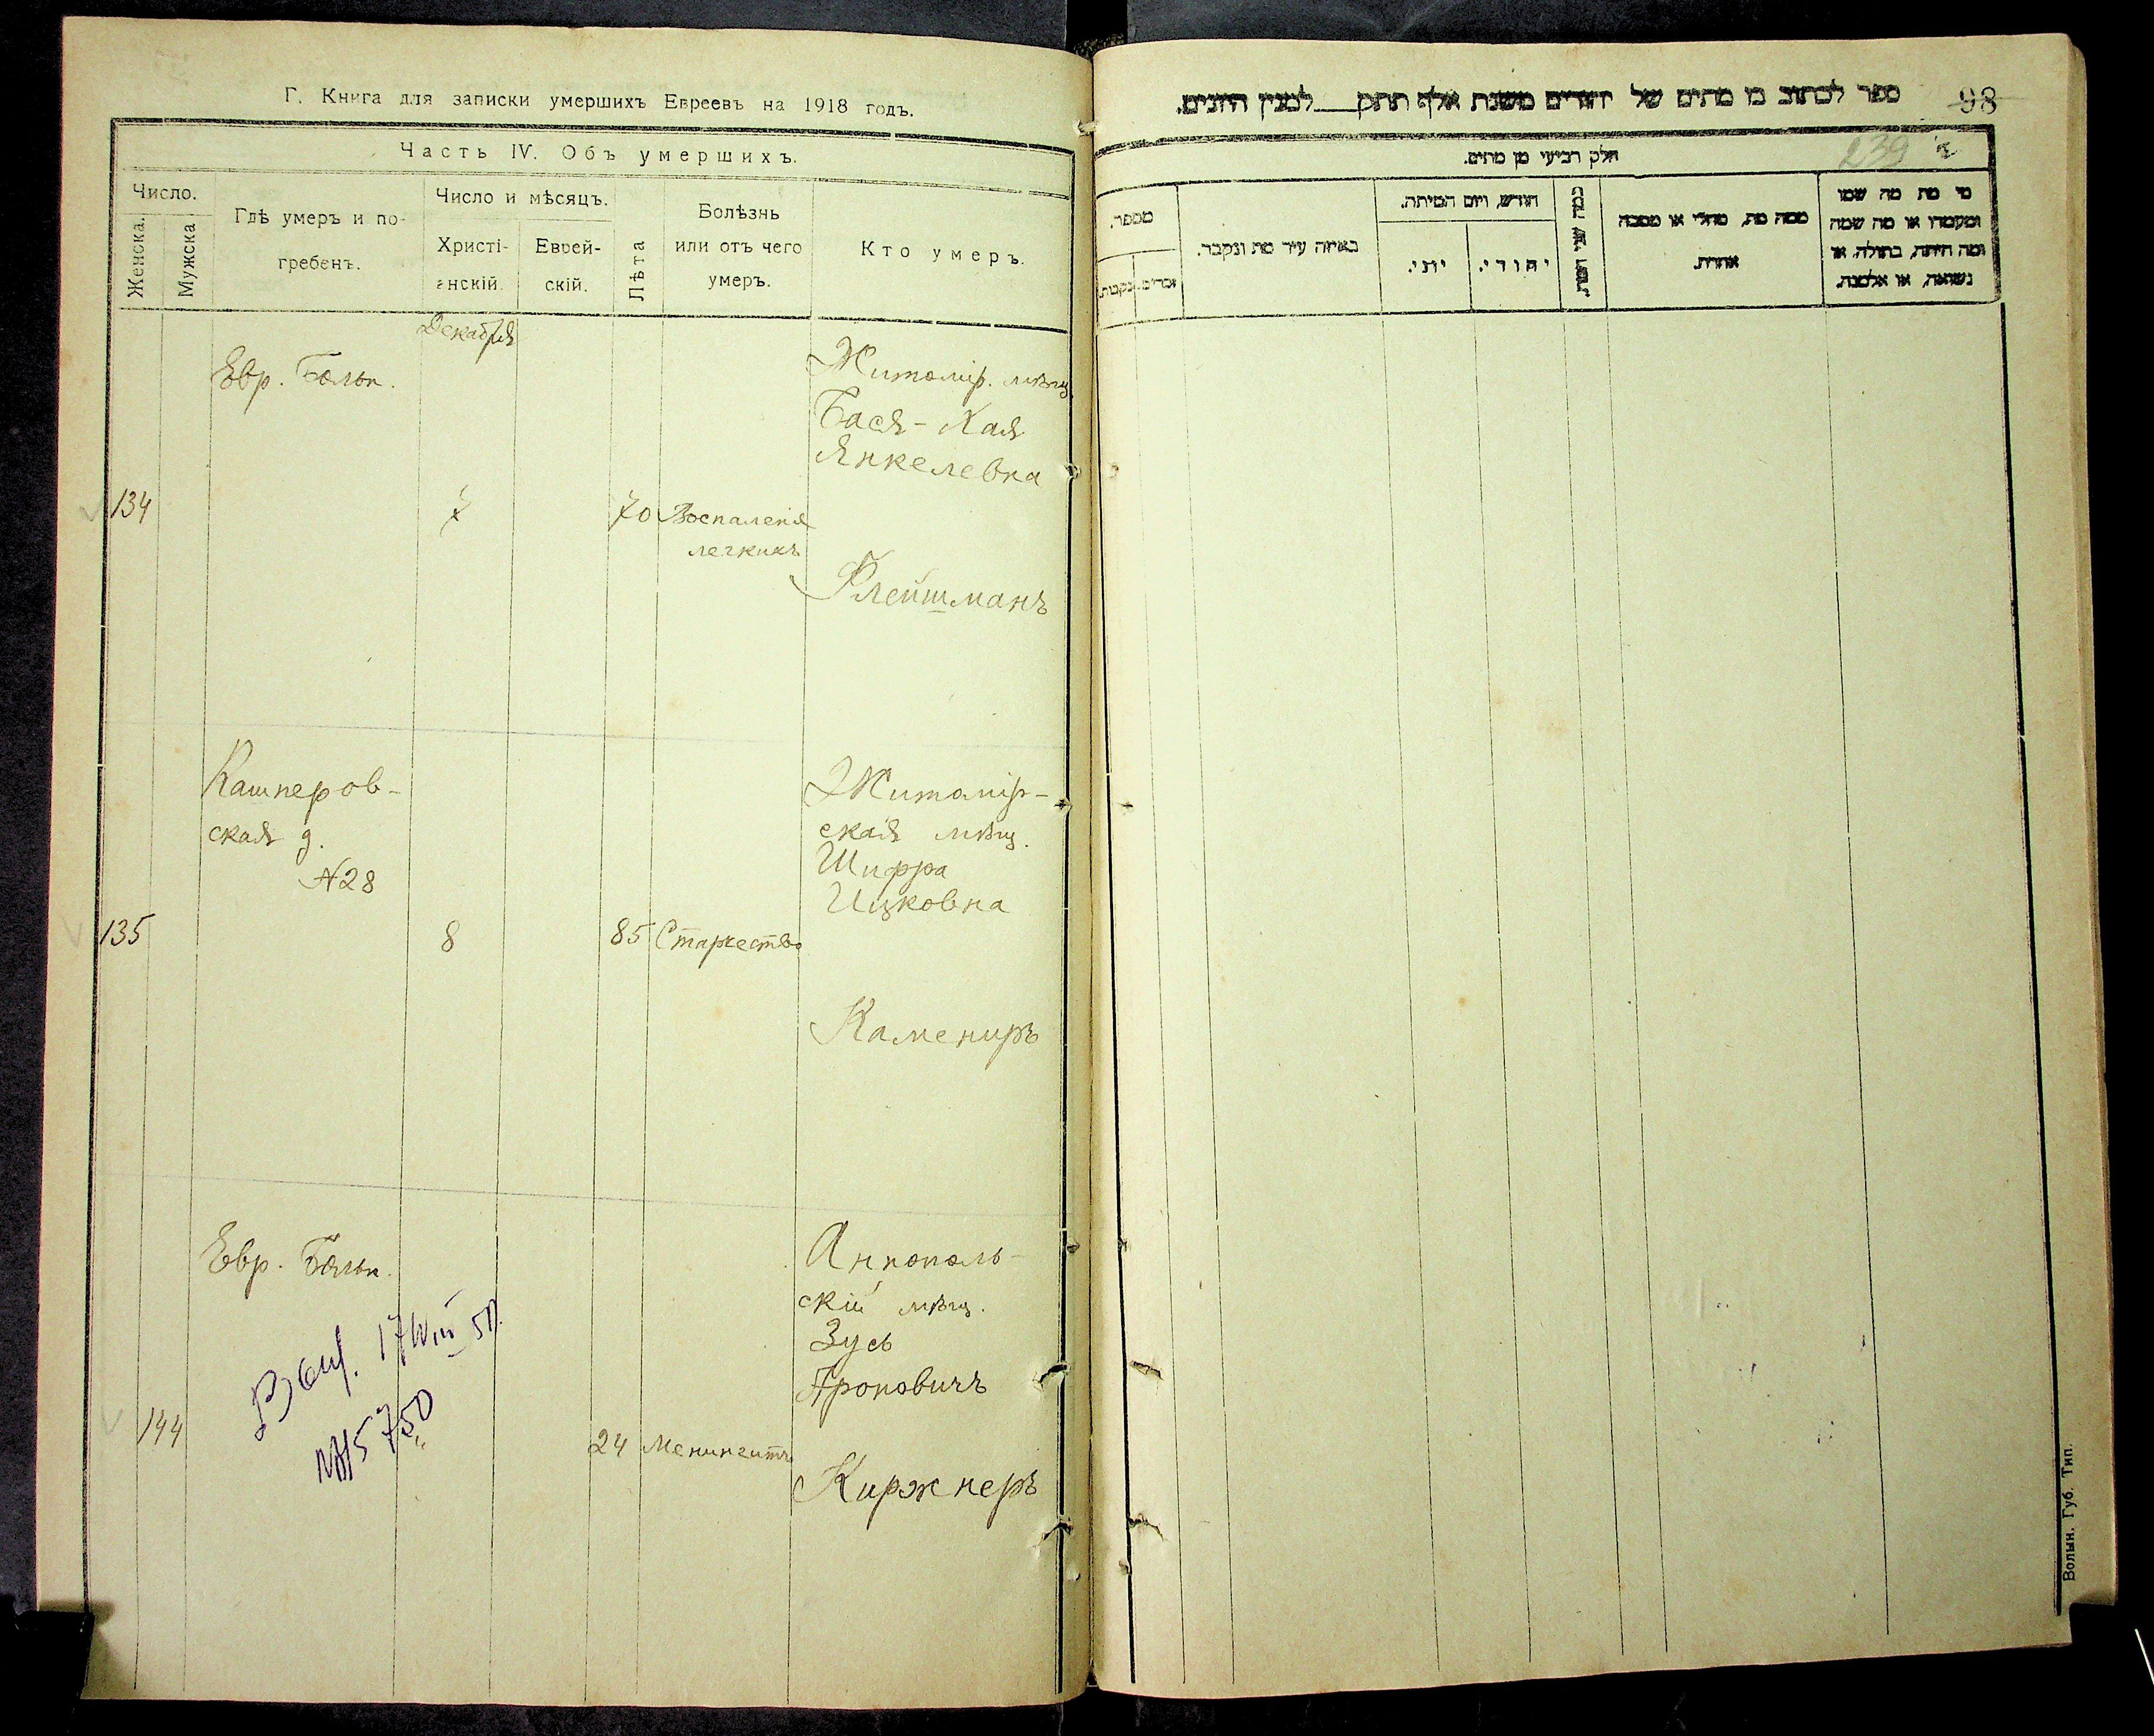 Г. Книга для записки умершихъ Евреевъ на 1918 годъ.
Часть IV. Объ умершихъ.
Число.
Женска.
Мужска
Гдѣ умеръ и по-
гребенъ.
Число и мѣсяцъ.
Христі-
анскій.
Еврей-
скій.
Лѣта
Болѣзнь
или отъ чего
умеръ.
Кто умеръ.
Декабря
Евр. Больн.
134
7
70
Воспаленія
легкихъ
Житомір. мѣщ.
Бася-Хая
Янкелевна
Флейшманъ
Кашперов-
ская д.
№28
135
8
85
Старчество
Житомір-
ская мѣщ.
Шифра
Ицковна
Камениръ
Евр. Больн.
144
24
Менингитъ
Аннополь-
скій мѣщ.
Зусь
Ароновичъ
Киржнеръ
ספר לכתוב בו מתים של יהודים משנת אלף תתק למנין היונים.
98
239
חלק רביעי מן מתים.
מספר.
זכרים.
נקבות.
באיזה עיר מת ונקבר.
חודש, ויום המיתה.
יוני.
יהודי.
כמה שני המת.
ממה מת, מחלי או מסבה
אחרת.
מי מת מה שמו
ומעמדו או מה שמה
ומה היתה, בתולה, או
נשואה, או אלמנה.
Волын. Губ. Тип.